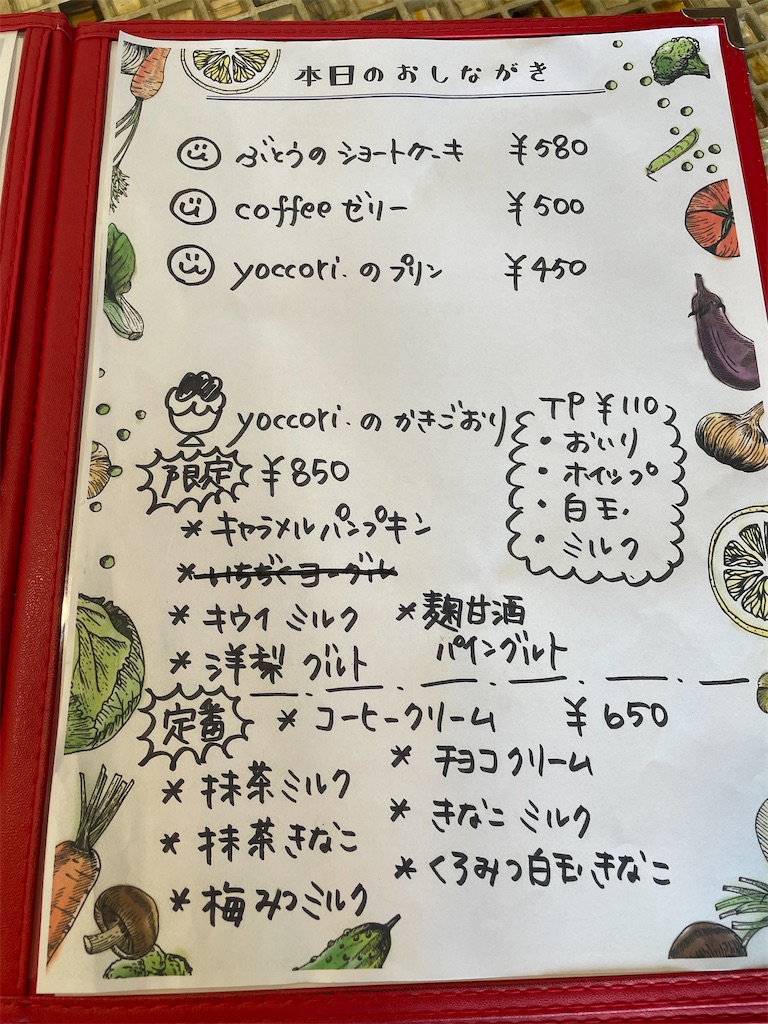 本日のおしながき
ぶどうのショートケーキ ¥580
coffeeゼリー ¥500
yoccori.のプリン ¥450
yoccori.のかきごおり
限定 ¥850
* キャラメルパンプキン
* いちぢくヨーグル
* キウイミルク
* 洋梨グルト
* 麹甘酒
パイングルト
TP ¥110
・おいり
・ホイップ
・白玉
・ミルク
定番 * コーヒークリーム ¥650
* チョコクリーム
* 抹茶ミルク
* きなこミルク
* 抹茶きなこ
* くろみつ白玉きなこ
* 梅みつミルク